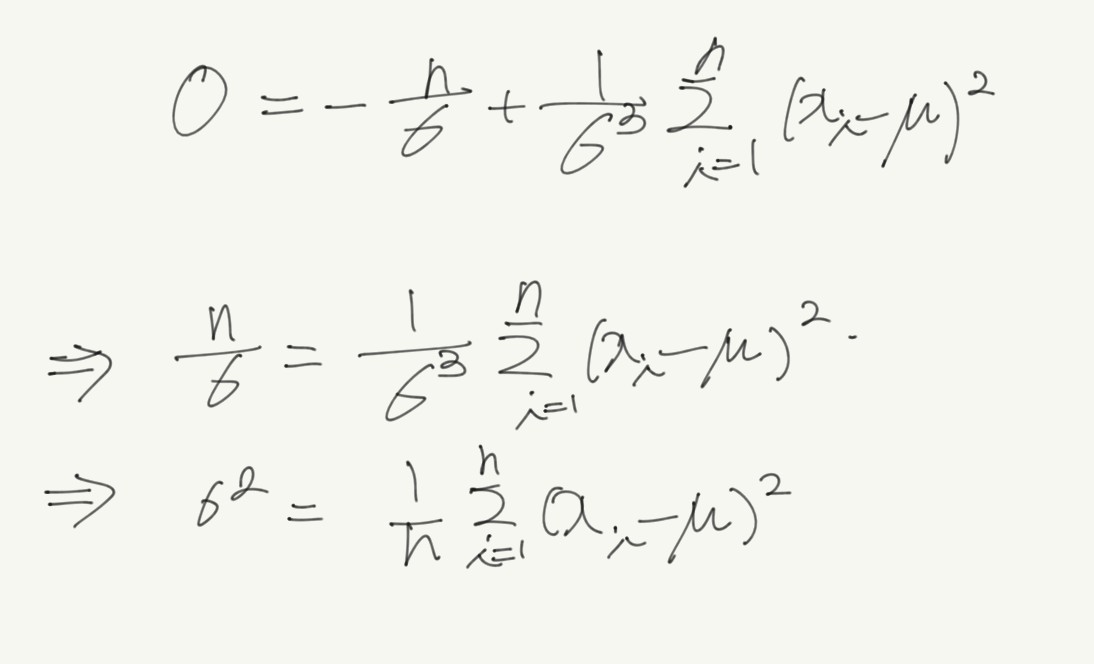 0 = -\frac{n}{σ} + \frac{1}{σ^3} \sum_{i=1}^{n} (x_i - μ)^2
⇒ \frac{n}{σ} = \frac{1}{σ^3} \sum_{i=1}^{n} (x_i - μ)^2 .
⇒ σ^2 = \frac{1}{n} \sum_{i=1}^{n} (x_i - μ)^2